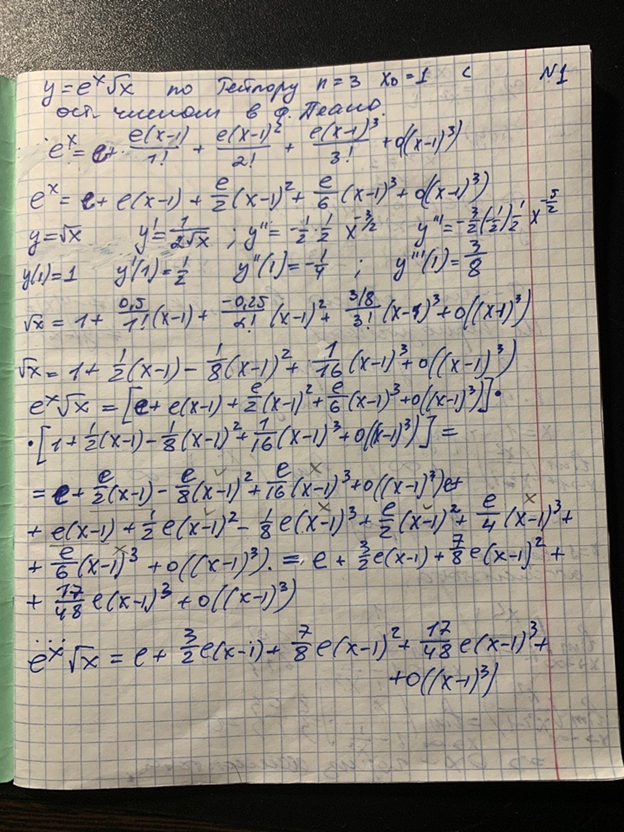 y = e^x √x по Тейлору n = 3 x₀ = 1 с №1
ост. членом в ф. Пеано.
e^x = e + e(x-1)/1! + e(x-1)²/2! + e(x-1)³/3! + o((x-1)³)
e^x = e + e(x-1) + e/2 (x-1)² + e/6 (x-1)³ + o((x-1)³)
y = √x y' = 1/(2√x) ; y'' = -1/2 · 1/2 x^(-3/2) y''' = -3/2 (-1/2) 1/2 x^(-5/2)
y(1) = 1 y'(1) = 1/2 y''(1) = -1/4 ; y'''(1) = 3/8
√x = 1 + 0,5/1! (x-1) + -0,25/2! (x-1)² + 3/8/3! (x-1)³ + o((x-1)³)
√x = 1 + 1/2 (x-1) - 1/8 (x-1)² + 1/16 (x-1)³ + o((x-1)³)
e^x √x = [e + e(x-1) + e/2 (x-1)² + e/6 (x-1)³ + o((x-1)³)] ·
· [1 + 1/2 (x-1) - 1/8 (x-1)² + 1/16 (x-1)³ + o((x-1)³)] =
= e + e/2 (x-1) - e/8 (x-1)² + e/16 (x-1)³ + o((x-1)³) e +
+ e(x-1) + 1/2 e(x-1)² - 1/8 e(x-1)³ + e/2 (x-1)² + e/4 (x-1)³ +
+ e/6 (x-1)³ + o((x-1)³). = e + 3/2 e(x-1) + 7/8 e(x-1)² +
+ 17/48 e(x-1)³ + o((x-1)³)
e^x √x = e + 3/2 e(x-1) + 7/8 e(x-1)² + 17/48 e(x-1)³ +
+ o((x-1)³)